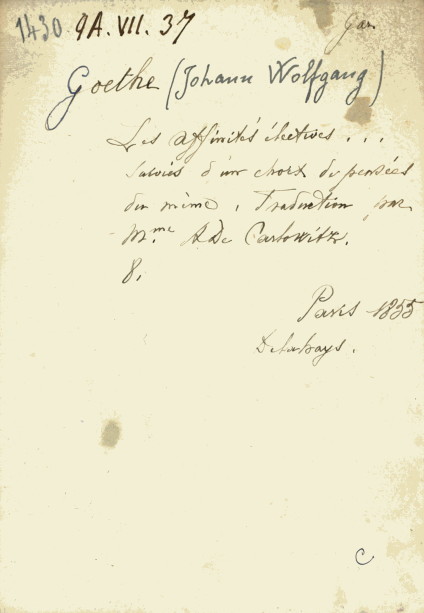 1430 9A. VII. 37
Goethe (Johann Wolfgang)
Les affinités électives...
suivies d'un choix de pensées
du même. Traduction par
Mme A De Carlowitz.
8.
Paris 1855
Delahays.
C